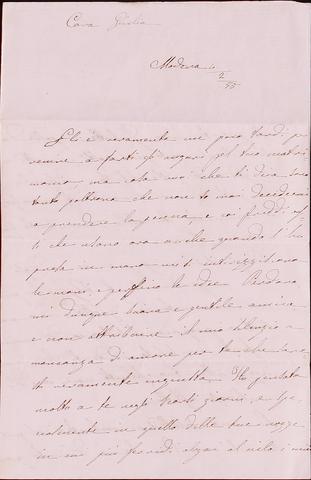 Cara Giulia
Modena
2
Gli è veramente un poco tardi per
venire a farti gli auguri pel tuo matri
monio, ma cosa vuoi che ti dica sono
tanto poltrona che non so mai decidermi
a prendere la penna, e coi freddi
ti che usano ora anche quando l'ho
presa in mano mi si intirizziscono
le mani, e perfino le idee. Perdona
mi dunque buona e gentile amica
e non attribuire il mio silenzio a
mancanza di amore per te che
ti veramente ingiusta. Ho pensato
molto a te negli scorsi giorni, e spe
cialmente in quello delle tue nozze
in cui più fervidi alzai al cielo i miei